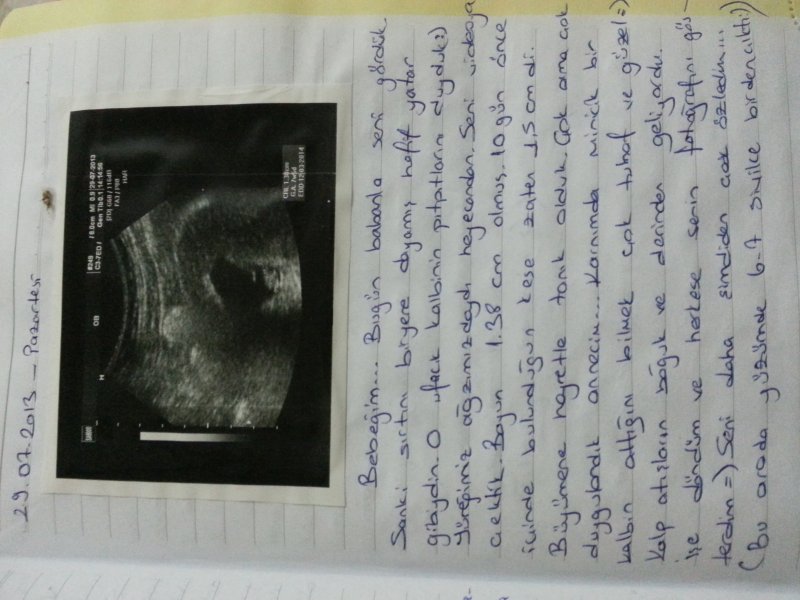 29.07.2013 - Pazartesi
8249 / 8.0cm MI 0.9 29-07-2013
C3-7ED / OB Gen TIb:0.1 14:14:56
[2D] G60 / 116dB
FA3 / P90
HAR
CRL 1.38cm
G.A. 7w5d
EDD 12-03-2014
Bebeğim... Bugün babanla seni gördük.
Sanki sırtını biryere dayamış hafif yatar
gibiydin. O ufacık kalbinin pıtpıtlarını duyduk:)
Yüreğimiz ağzımızdaydı heyecandan. Seni videoya
çektik. Boyun 1.38 cm olmuş. 10 gün önce
içinde bulunduğun kese zaten 1,5 cm di.
Büyümene hayretle tanık olduk. Çok ama çok
duygulandık annecim... Karnımda minicik bir
kalbin attığını bilmek çok tuhaf ve güzel=)
Kalp atışların boğuk ve derinden geliyordu.
İşe döndüm ve herkese senin fotoğrafını gös-
terdim=) Seni daha şimdiden çok özledim...
(Bu arada yüzümde 6-7 sivilce birden çıktı:))